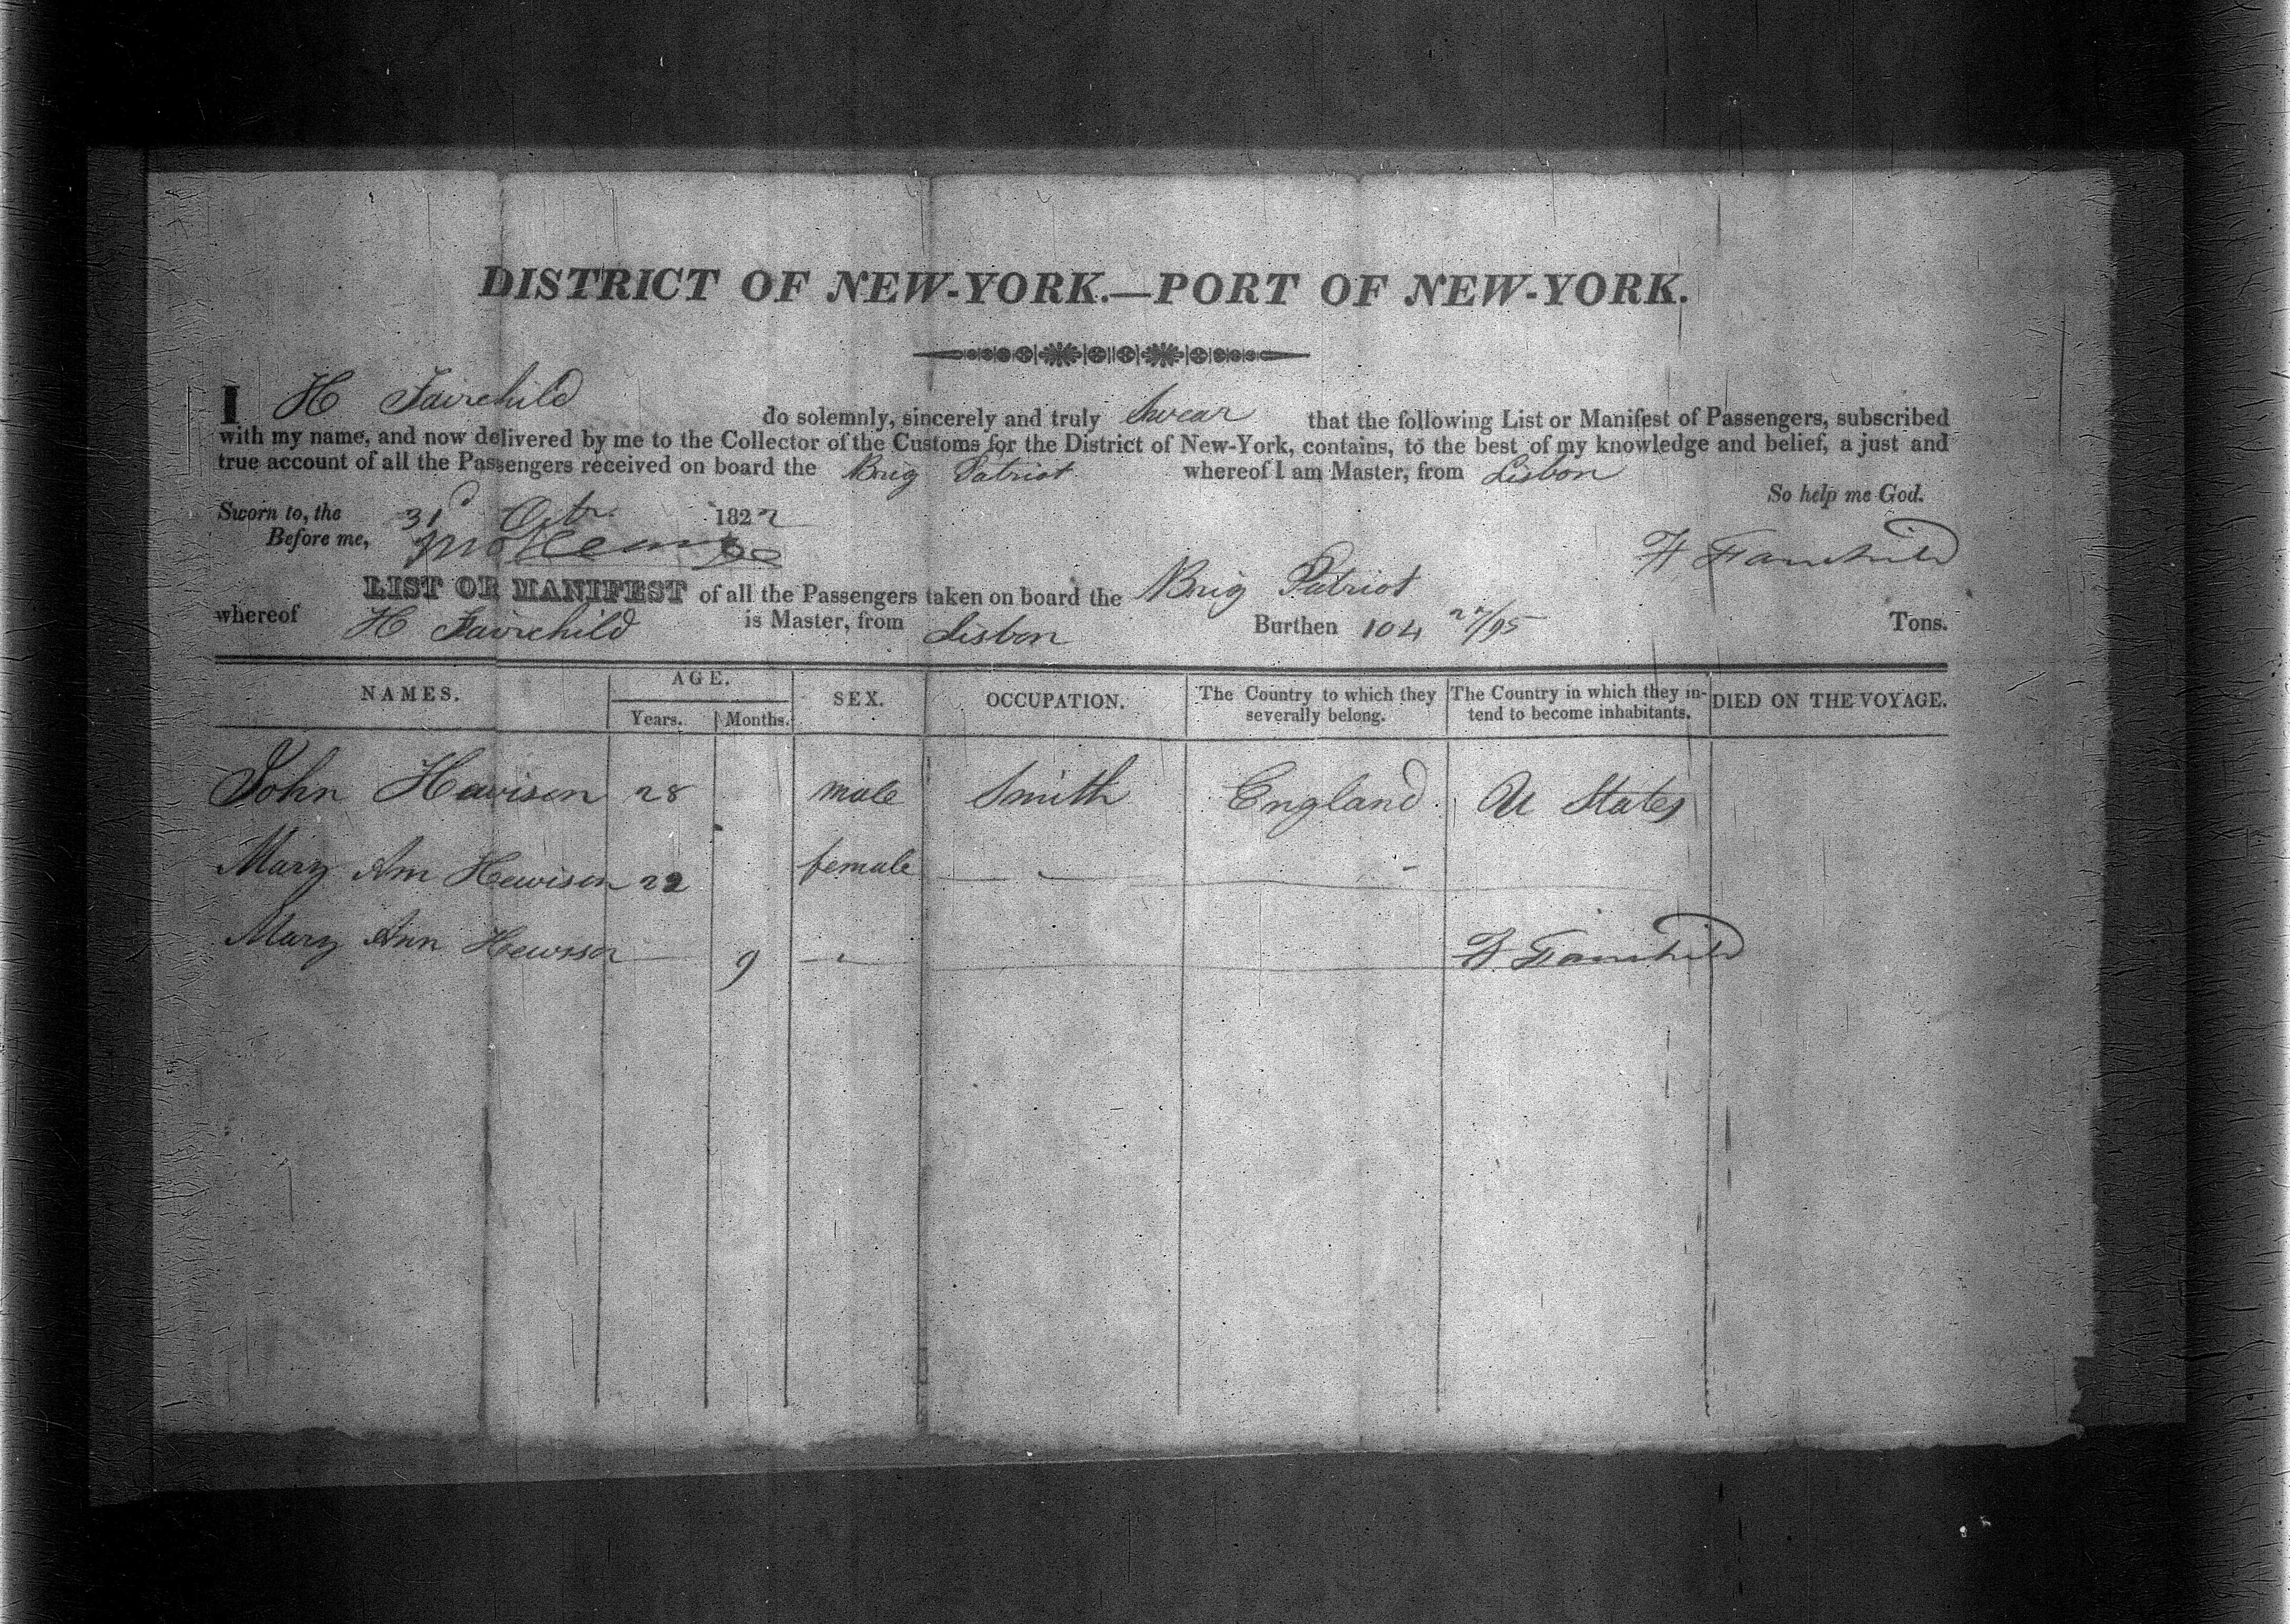 DISTRICT OF NEW-YORK.—PORT OF NEW-YORK.
I H Fairchild do solemnly, sincerely and truly swear that the following List or Manifest of Passengers, subscribed
with my name, and now delivered by me to the Collector of the Customs for the District of New-York, contains, to the best of my knowledge and belief, a just and
true account of all the Passengers received on board the Brig Patriot whereof I am Master, from Lisbon
So help me God.
Sworn to, the 31 Octr 1827
Before me,
H Fairchild
LIST OR MANIFEST of all the Passengers taken on board the Brig Patriot
whereof H Fairchild is Master, from Lisbon Burthen 104 27/95 Tons.
NAMES. AGE. Years. Months. SEX. OCCUPATION. The Country to which they severally belong. The Country in which they intend to become inhabitants. DIED ON THE VOYAGE.
John Hewison 28 male Smith England U States
Mary Ann Hewison 22 female
Mary Ann Hewison 9
H Fairchild